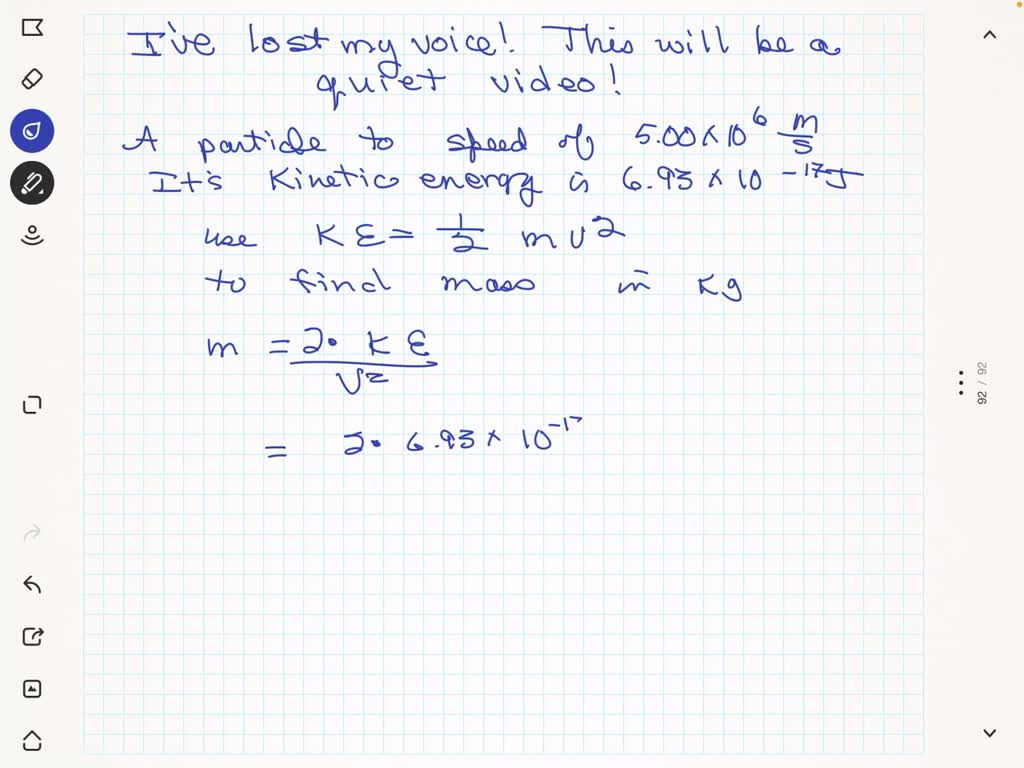 I've lost my voice! This will be a
quiet video!
A particle to speed of 5.00 × 10⁶ m/s
It's Kinetic energy is 6.93 × 10⁻¹⁷J
use KE = 1/2 mv²
to find mass in Kg
m = 2· KE / v²
= 2· 6.93 × 10⁻¹⁷
92 / 92